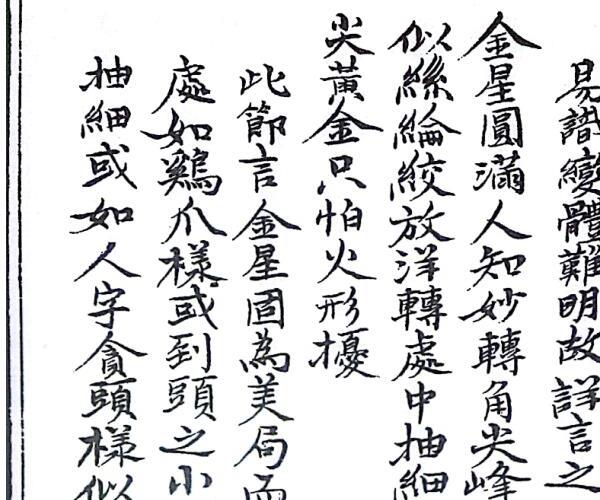 易講變體難明故詳言之
金星圓滿人知妙轉角尖峰
似絲綸絞放洋轉處中抽細
尖黃金只怕火形擾
此節言金星固為美局而
處如鷄爪樣或到頭之小
抽細或如人字貪頭樣似